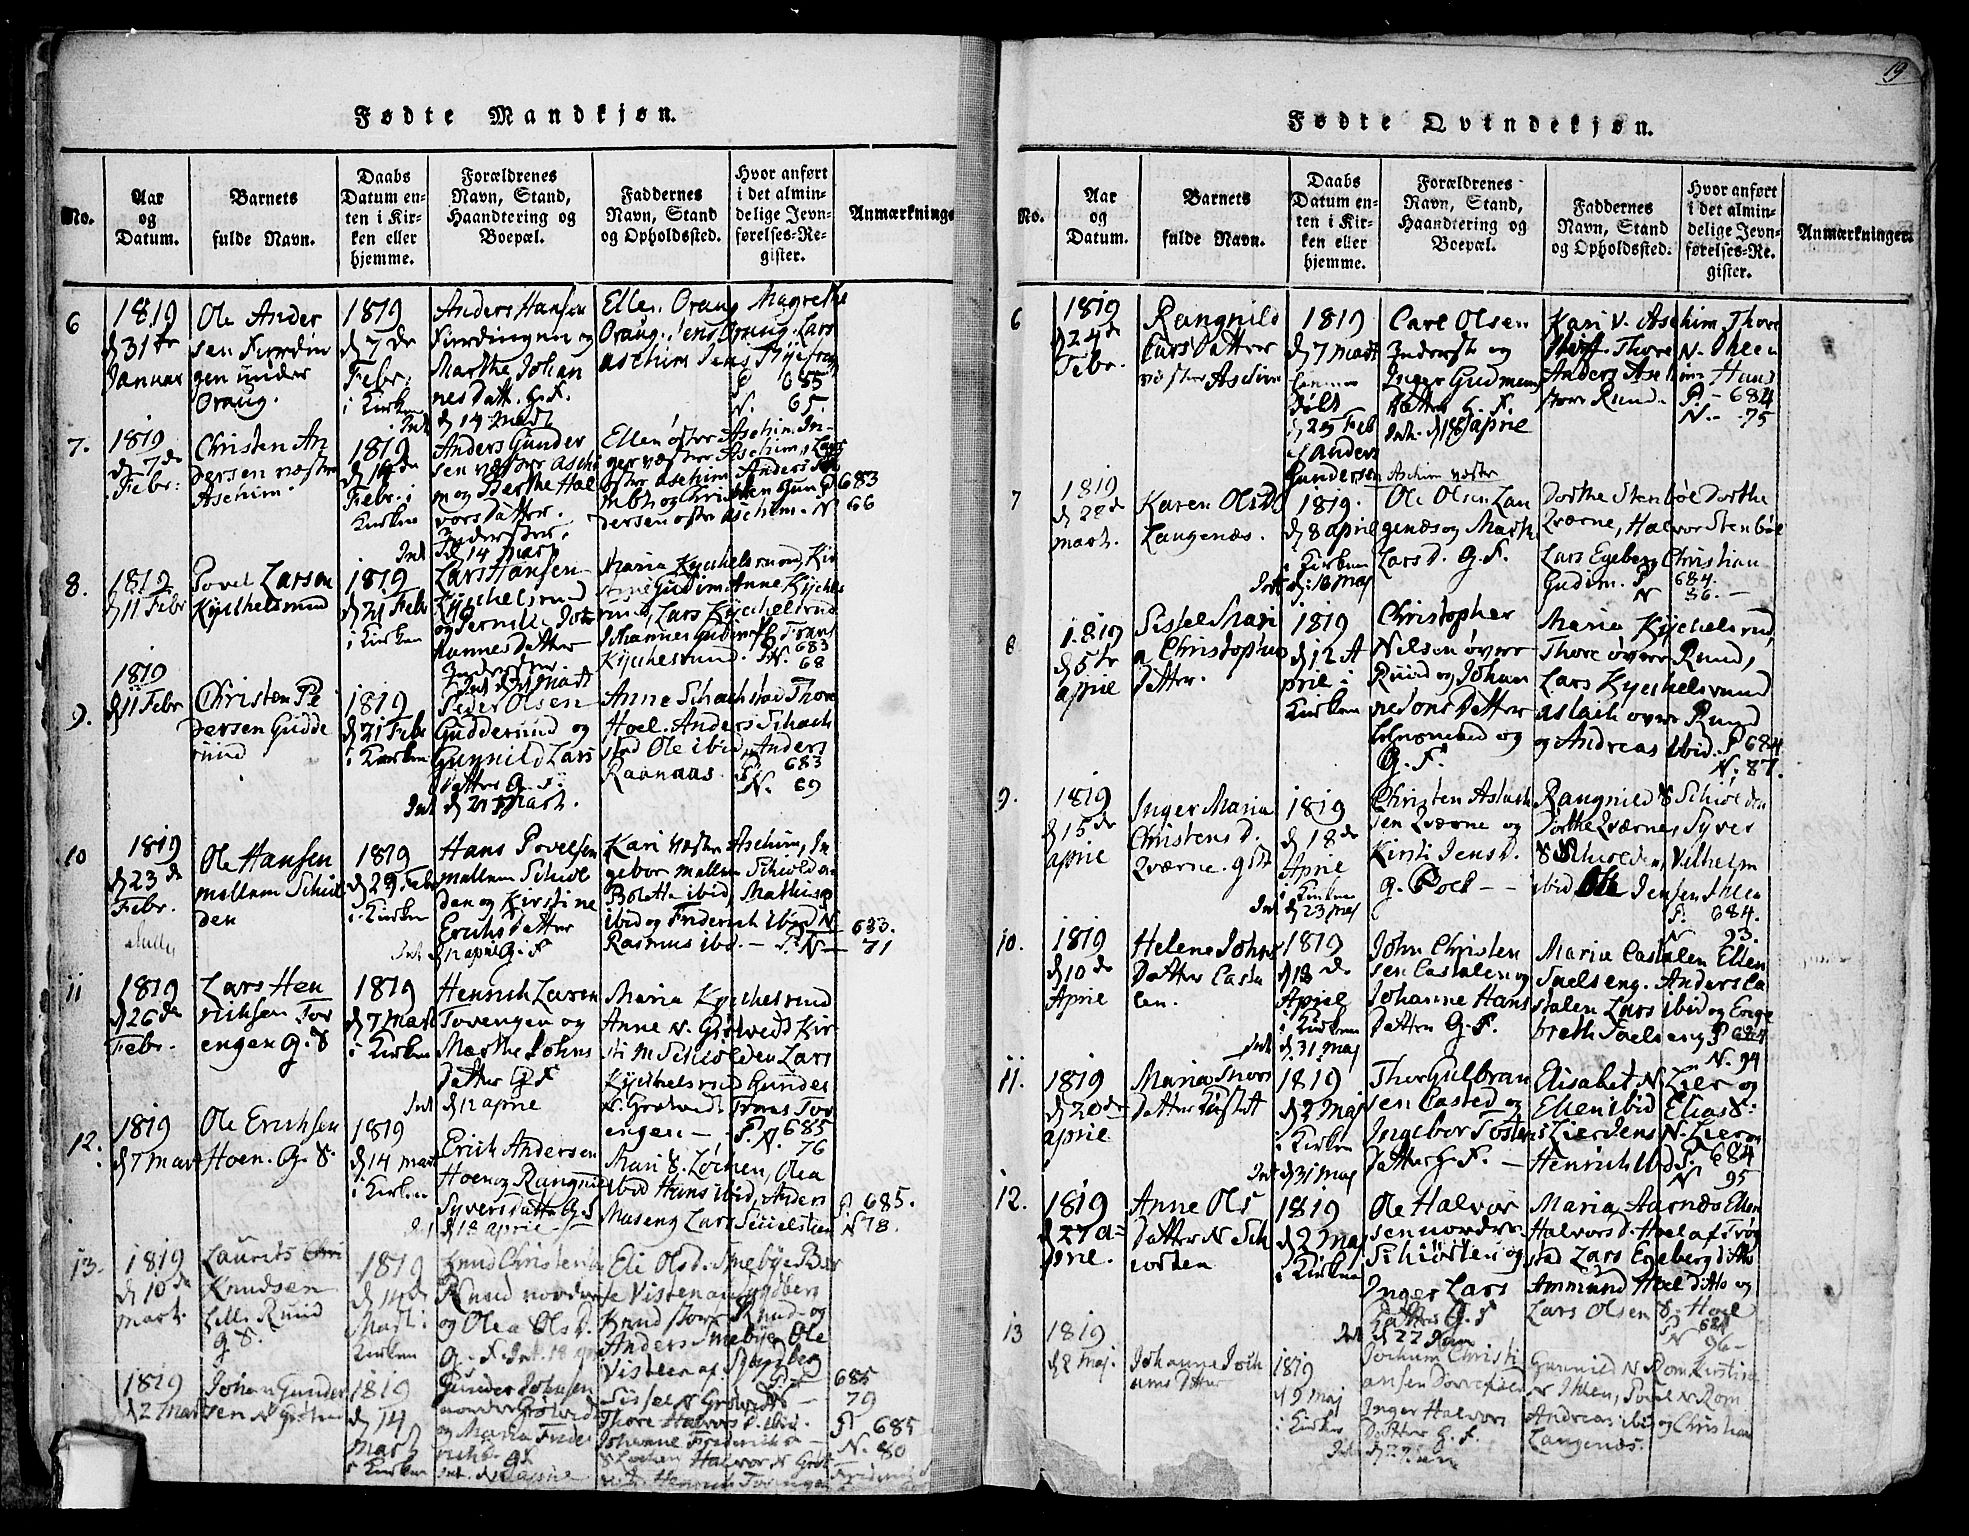 19
Fødte Mandkjøn.
No.
Aar
og
Datum.
Barnets
fulde Navn.
Daabs
Datum en-
ten i Kir-
ken eller
hjemme.
Forældrenes
Navn, Stand,
Haandtering og
Boepæl.
Faddernes
Navn, Stand
og Opholdssted.
Hvor anført
i det almin-
delige Jevn-
førelses-Re-
gister.
Anmærknings
6
1819
d 31te
Januar
Ole Ander
sen Furdin
gen under
Oraug.
1819
d 7de
Febr.
i Kirken
Anders Hansen
Furdingen og
Marthe Johan
nes Datt. G. F.
Int d 14 Mart
Ellen Oraug Magrethe
Oraug. Jens Oraug. Lars
Aschim Jens
P 685
N. 65
7.
1819
d 7de
Febr.
Christen An
dersen væstre
Aschim.
1819
d 14de
Febr. i
Kirken
Anders Gunder
sen væstre Aschi
m og Berthe Hal
vors Datter.
Inderster.
Int d 14 Mart
Ellen østre Aschim In
ger væstre Aschim, Lars
østre Aschim Anders
Christen Gun
dersen østre Aschim.
P 683
N 66
8.
1819
d 11 Febr
Povel Larsen
Kychelsrud
1819
d 21 Febr
i Kirken
Lars Hansen
Kychelsrud
og Pernille Joh
annes Datter
Inderster.
Int d 21 Mart
Maria Kychelsrud, Kir
stine Gudim Anne Kyches
rud, Lars Kychelsrud
Johannes Gudim Frans
Kychelsrud.
P. 683
N. 68
9.
1819
d 11 Febr
Christen Pe
dersen Gudde
rud
1819
d 21 Febr
i Kirken
Peder Olsen
Gudderud og
Gunnild Lars
Datter G. F.
Int d 21 Mart.
Anne Schachstad Thore
Hoel. Anders Schach
stad Ole ibid, Anders
Raanaas
P. 683
N. 69
10
1819
d 23de
Febr.
Ole Hansen
mellem Schiol
den
1819
d 29 Febr
i Kirken
Hans Povelsen
mellem Schiol
den og Kirstine
Erichs Datter
Int d 12 april G. F
Kari væstre Aschim, In
gebor mellem Schiolden
Bolette ibid, Mathis
ibid og Friderich ibid
Rasmus ibid
P. 683.
N 71
11
1819
d 26de
Febr.
Lars Hen
richsen Tov
engen G. S
1819
d 7 Mart
i Kirken
Henrich Larsen
Tovengen og
Marthe Johns
Datter G. F
Int d 12 april
Maria Kychelsrud
Anne N. Grøtvedt Kir
sti M Schiolden Lars
Kychelsrud Gunder
N. Grøtvedt Frans Tov
engen
P. 685
N. 76
12.
1819
d 7 Mart
Ole Erichsen
Hoen. G. S.
1819
d 14 Mart
i Kirken
Erich Andersen
Hoen og Rangnild
Syvers Datter G. F
Int d 18 april
Mari S. Lørnen, Olea
ibid Hans ibid, Anders
Maseng Lars
P 685.
N 78.
13.
1819
d 10de
Mart.
Laurits Chri
Knudsen
Lille Ruud
G S.
1819
d 14de
Mart i
Kirken
Knud Christensen
Ruud nordre
og Olea Ols D.
G. F. Int. 18 apr
Eli Ols D. Smebye Ber
te Visten af
Knud store Ruud og
Anders Smebye Ole
Visten af
P. 685
79
1819
d 2 Mart
Johan Gunder
sen N Grøtvedt
1819
d 14
Mart
i Kirken
Gunder Johnsen
nordre Grøtvedt
og Maria Frider
richs D.
Int. d
Sissel N Grøtvedt
Thore Halvors D. ibid.
Johanne Friderichs
Halvor N Grøt
vedt Henrich Tovengen
P 685
N. 80
Fødte Qvindekjøn.
No.
Aar
og
Datum.
Barnets
fulde Navn.
Daabs
Datum en-
ten i Kir-
ken eller
hjemme.
Forældrenes
Navn, Stand,
Haandtering og
Boepæl.
Faddernes
Navn, Stand
og Opholdssted.
Hvor anført
i det almin-
delige Jevn-
førelses-Re-
gister.
Anmærkninger.
6
1819
d 24de
Febr.
Rangnild
Carls Datter
væstre Aschim
1819
d 7 Mart
hiemme
døbt
d 25 Feb
af Anders
Gundersen
Carl Olsen
Inderste og
Inger Gudmun
Datter G. F.
Int. d 18 aprie
Aschim væstre
Kari V. Aschim, Thore
N. Ihlen
Anders Aschim Hans
store Ruud.
P. 684
N. 75
7
1819
d 28de
Mart.
Karen Ols D
Langenæs.
1819.
d 8 april
i Kirken
Int d. 16 Maj
Ole Olsen Lan
genæs og Marthe
Lars D. G. F.
Dorthe Stenbøl Dorthe
Qværne, Halvor Stenbøl
Lars Egeberg Christian
Gudim.
P 684.
N 86.
8
1819
d 5te
aprie
Sissel Mari
a Christophers
Datter.
1819
d 12 A
prie i
Kirken
Christopher
Nilsen øvre
Ruud og Johan
ne Jons Datter
G. F.
Maria Kychelsrud,
Thore øvre Ruud,
Lars Kychelsrud
Aslach øvre Ruud
og Andreas ibid.
P 684
N. 87.
9.
1819
d 15de
aprie
Inger Maria
Christens D.
Qværne. G D
1819
d 18de
Aprie
i Kirken
Int d 23 Maj
Christen Aslach
sen Qværne og
Kirsti Jens D.
G. Folk
Rangnild S Schiolden
Dorthe Qværne, Syver
S Schiolden, Vilhelm
ibid Ole Jensen Ihlen
P. 684.
N 93.
10.
1819
d 10de
Aprie
Helene Johns
Datter Casta
len.
1819
d 18de
Aprie
i Kirken
Int d 31 Maj
John Christen
sen Castalen og
Johanne Hans
Datter G. F.
Maria Castalen Ellen
Saelseng. Anders Ca
stalen Lars ibid og Enge
breth Saelseng
P 684
N. 94
11.
1819
d 20de
aprie
Maria Thors
Datter Castet
1819
d 2 Maj
i Kirken
Int d 31 Maj
Thor Gulbran
sen Casted og
Ingebor Tostens
Datter G. F.
Elisabet N Lier og
Ellen ibid Elias S.
Lier Jens N. Lier og
Henrich ibid
P. 684
N 95
12.
1819
d 27 A-
prie.
Anne Ols
Datter N Sch
iorten
1819
d 2 Maj
i Kirken
Ole Halvor
sen nordre
Schiorten og
Inger Lars
Datter G. F
Int d 22 Jun
Maria Aarnæs Ellen
Halvors D. Hoel af Trøg
stad Lars Egeberg ditto
Ammund Hoel ditto og
Lars Olsen S. Hoel
P 684
N 96
13
1819
d 2 Maj.
Johanne Joch
ums Datter
1819
d 9 Maj
i Kirken
Int d 22 Jun
Jochum Christi
ansen
Inger Halvors
Datter G. F.
Gunnild N Rom Kirstine
N Ihlen, Povel N Rom
Andreas ibid og Christian
Langenæs.